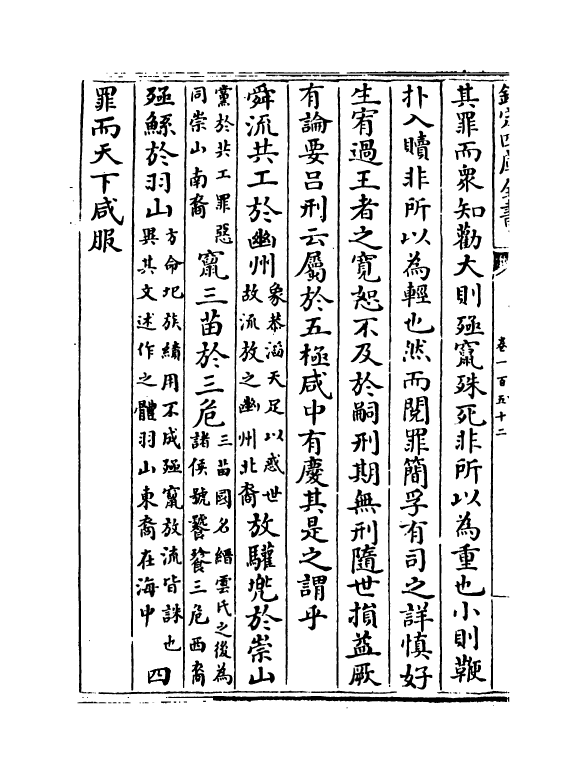 欽定四庫全書
卷一百五十二
其罪而衆知勸大則殛竄殊死非所以為重也小則鞭
扑入贖非所以為輕也然而閱罪簡孚有司之詳慎好
生宥過王者之寛恕不及於嗣刑期無刑隨世損益厥
有論要吕刑云屬於五極咸中有慶其是之謂乎
舜流共工於幽州象恭滔天足以惑世故流放之幽州北裔放驩兜於崇山
黨於共工罪惡同崇山南裔竄三苗於三危三苗國名縉雲氏之後為諸侯號饕餮三危西裔
殛鯀於羽山方命圮族績用不成殛竄放流皆誅也異其文述作之體羽山東裔在海中四
罪而天下咸服